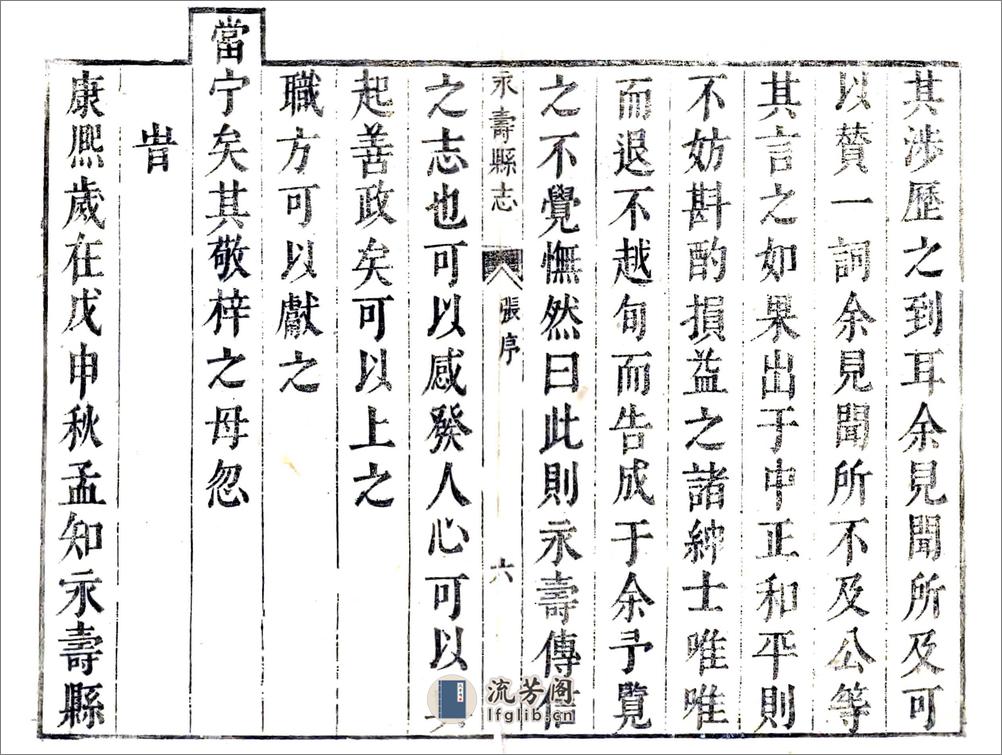 其涉歷之到耳余見聞所及可
以贊一詞余見聞所不及公等
其言之如果出于中正和平則
不妨斟酌損益之諸紳士唯唯
而退不越句而告成于余予覽
之不覺憮然曰此則永壽傳信
永壽縣志
張序
六
之志也可以感發人心可以
起善政矣可以上之
職方可以獻之
當宁矣其敬梓之毋忽
旹
康熈歲在戊申秋孟知永壽縣
流芳阁
lfglib.cn